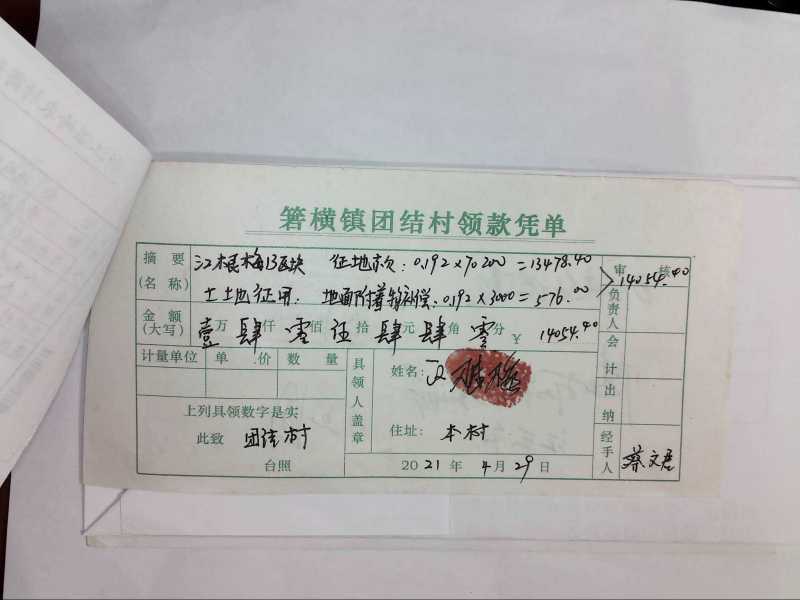 箬横镇团结村领款凭单
摘要(名称) 江根梅13区块 征地款:0.192×70200=13478.40
土地征用: 地面附着物补偿:0.192×3000=576.00
14054.40
金额(大写) 壹万肆仟零佰伍拾肆元肆角零分 ¥14054.40
计量单位 单价 数量
具领人盖章
姓名:江根梅
上列具领数字是实
此致 团结村
台照
住址:本村
2021年4月29日
审核
负责人
会计
出纳
经手人 蔡文